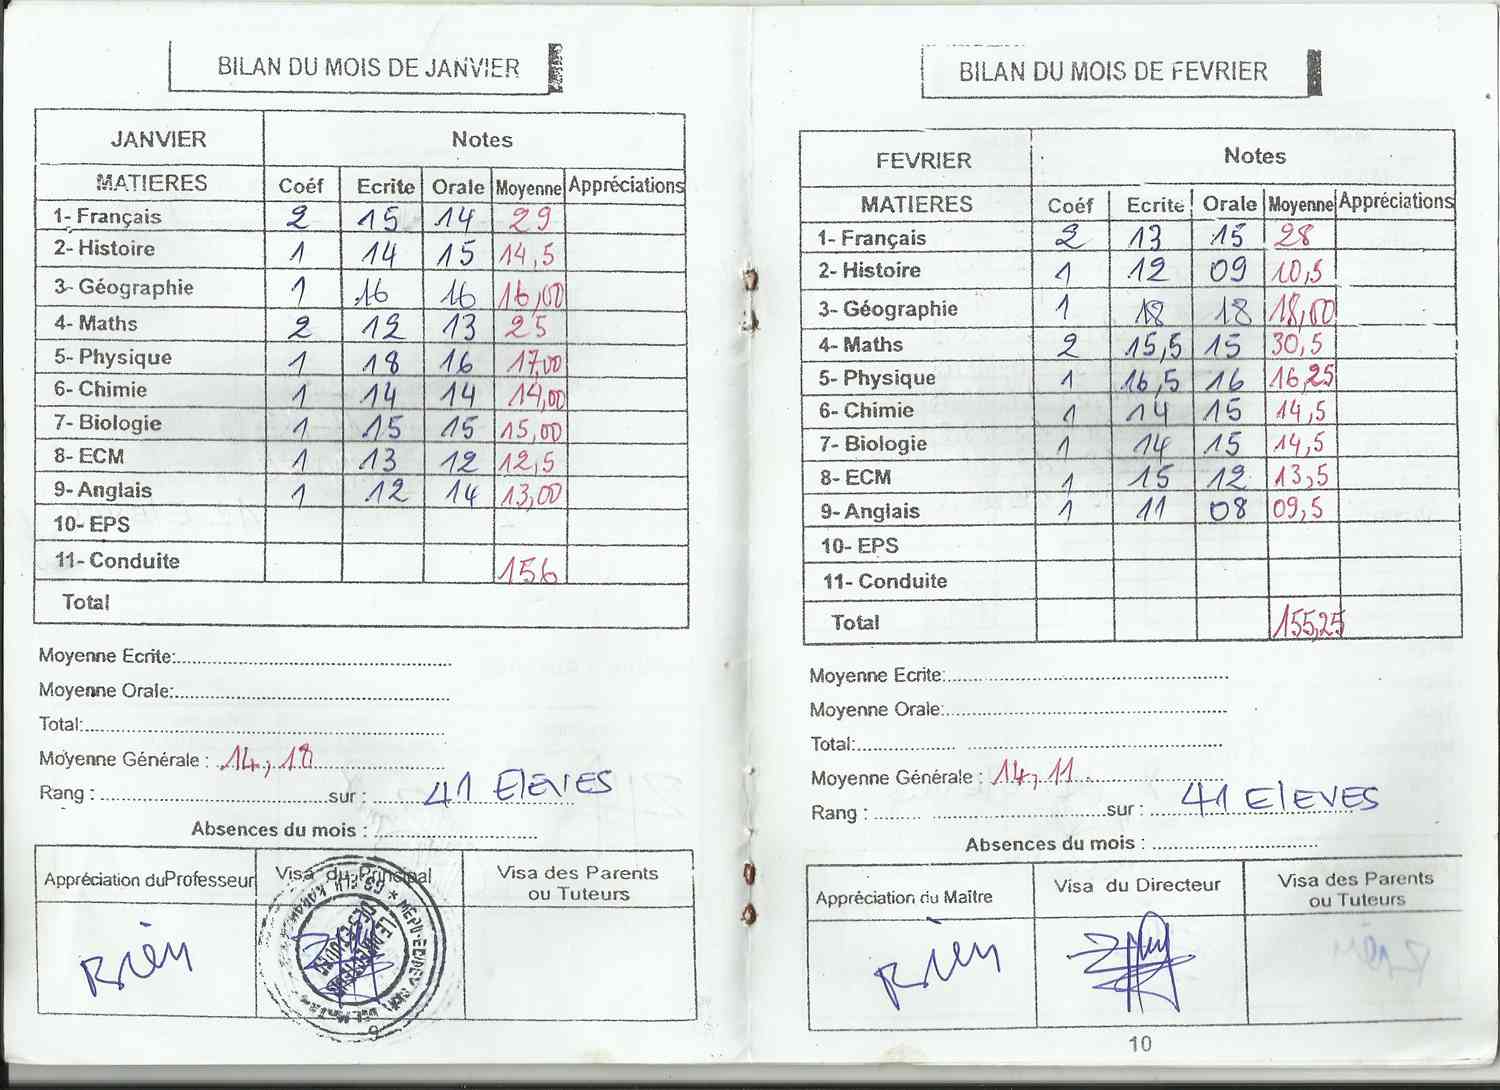 BILAN DU MOIS DE JANVIER
JANVIER Notes
MATIERES Coéf Ecrite Orale Moyenne Appréciations
1- Français 2 15 14 29
2- Histoire 1 14 15 14,5
3- Géographie 1 16 16 16,00
4- Maths 2 12 13 25
5- Physique 1 18 16 17,00
6- Chimie 1 14 14 14,00
7- Biologie 1 15 15 15,00
8- ECM 1 13 12 12,5
9- Anglais 1 12 14 13,00
10- EPS
11- Conduite 156
Total
Moyenne Ecrite:
Moyenne Orale:
Total:
Moyenne Générale : 14,18
Rang : sur : 41 ELEVES
Absences du mois :
Appréciation du Professeur Visa du Principal Visa des Parents
ou Tuteurs
Rien
BILAN DU MOIS DE FEVRIER
FEVRIER Notes
MATIERES Coéf Ecrite Orale Moyenne Appréciations
1- Français 2 13 15 28
2- Histoire 1 12 09 10,5
3- Géographie 1 18 18 18,00
4- Maths 2 15,5 15 30,5
5- Physique 1 16,5 16 16,25
6- Chimie 1 14 15 14,5
7- Biologie 1 14 15 14,5
8- ECM 1 15 12 13,5
9- Anglais 1 11 08 09,5
10- EPS
11- Conduite
Total 155,25
Moyenne Ecrite:
Moyenne Orale:
Total:
Moyenne Générale : 14,11
Rang : sur : 41 ELEVES
Absences du mois :
Appréciation du Maître Visa du Directeur Visa des Parents
ou Tuteurs
Rien
10